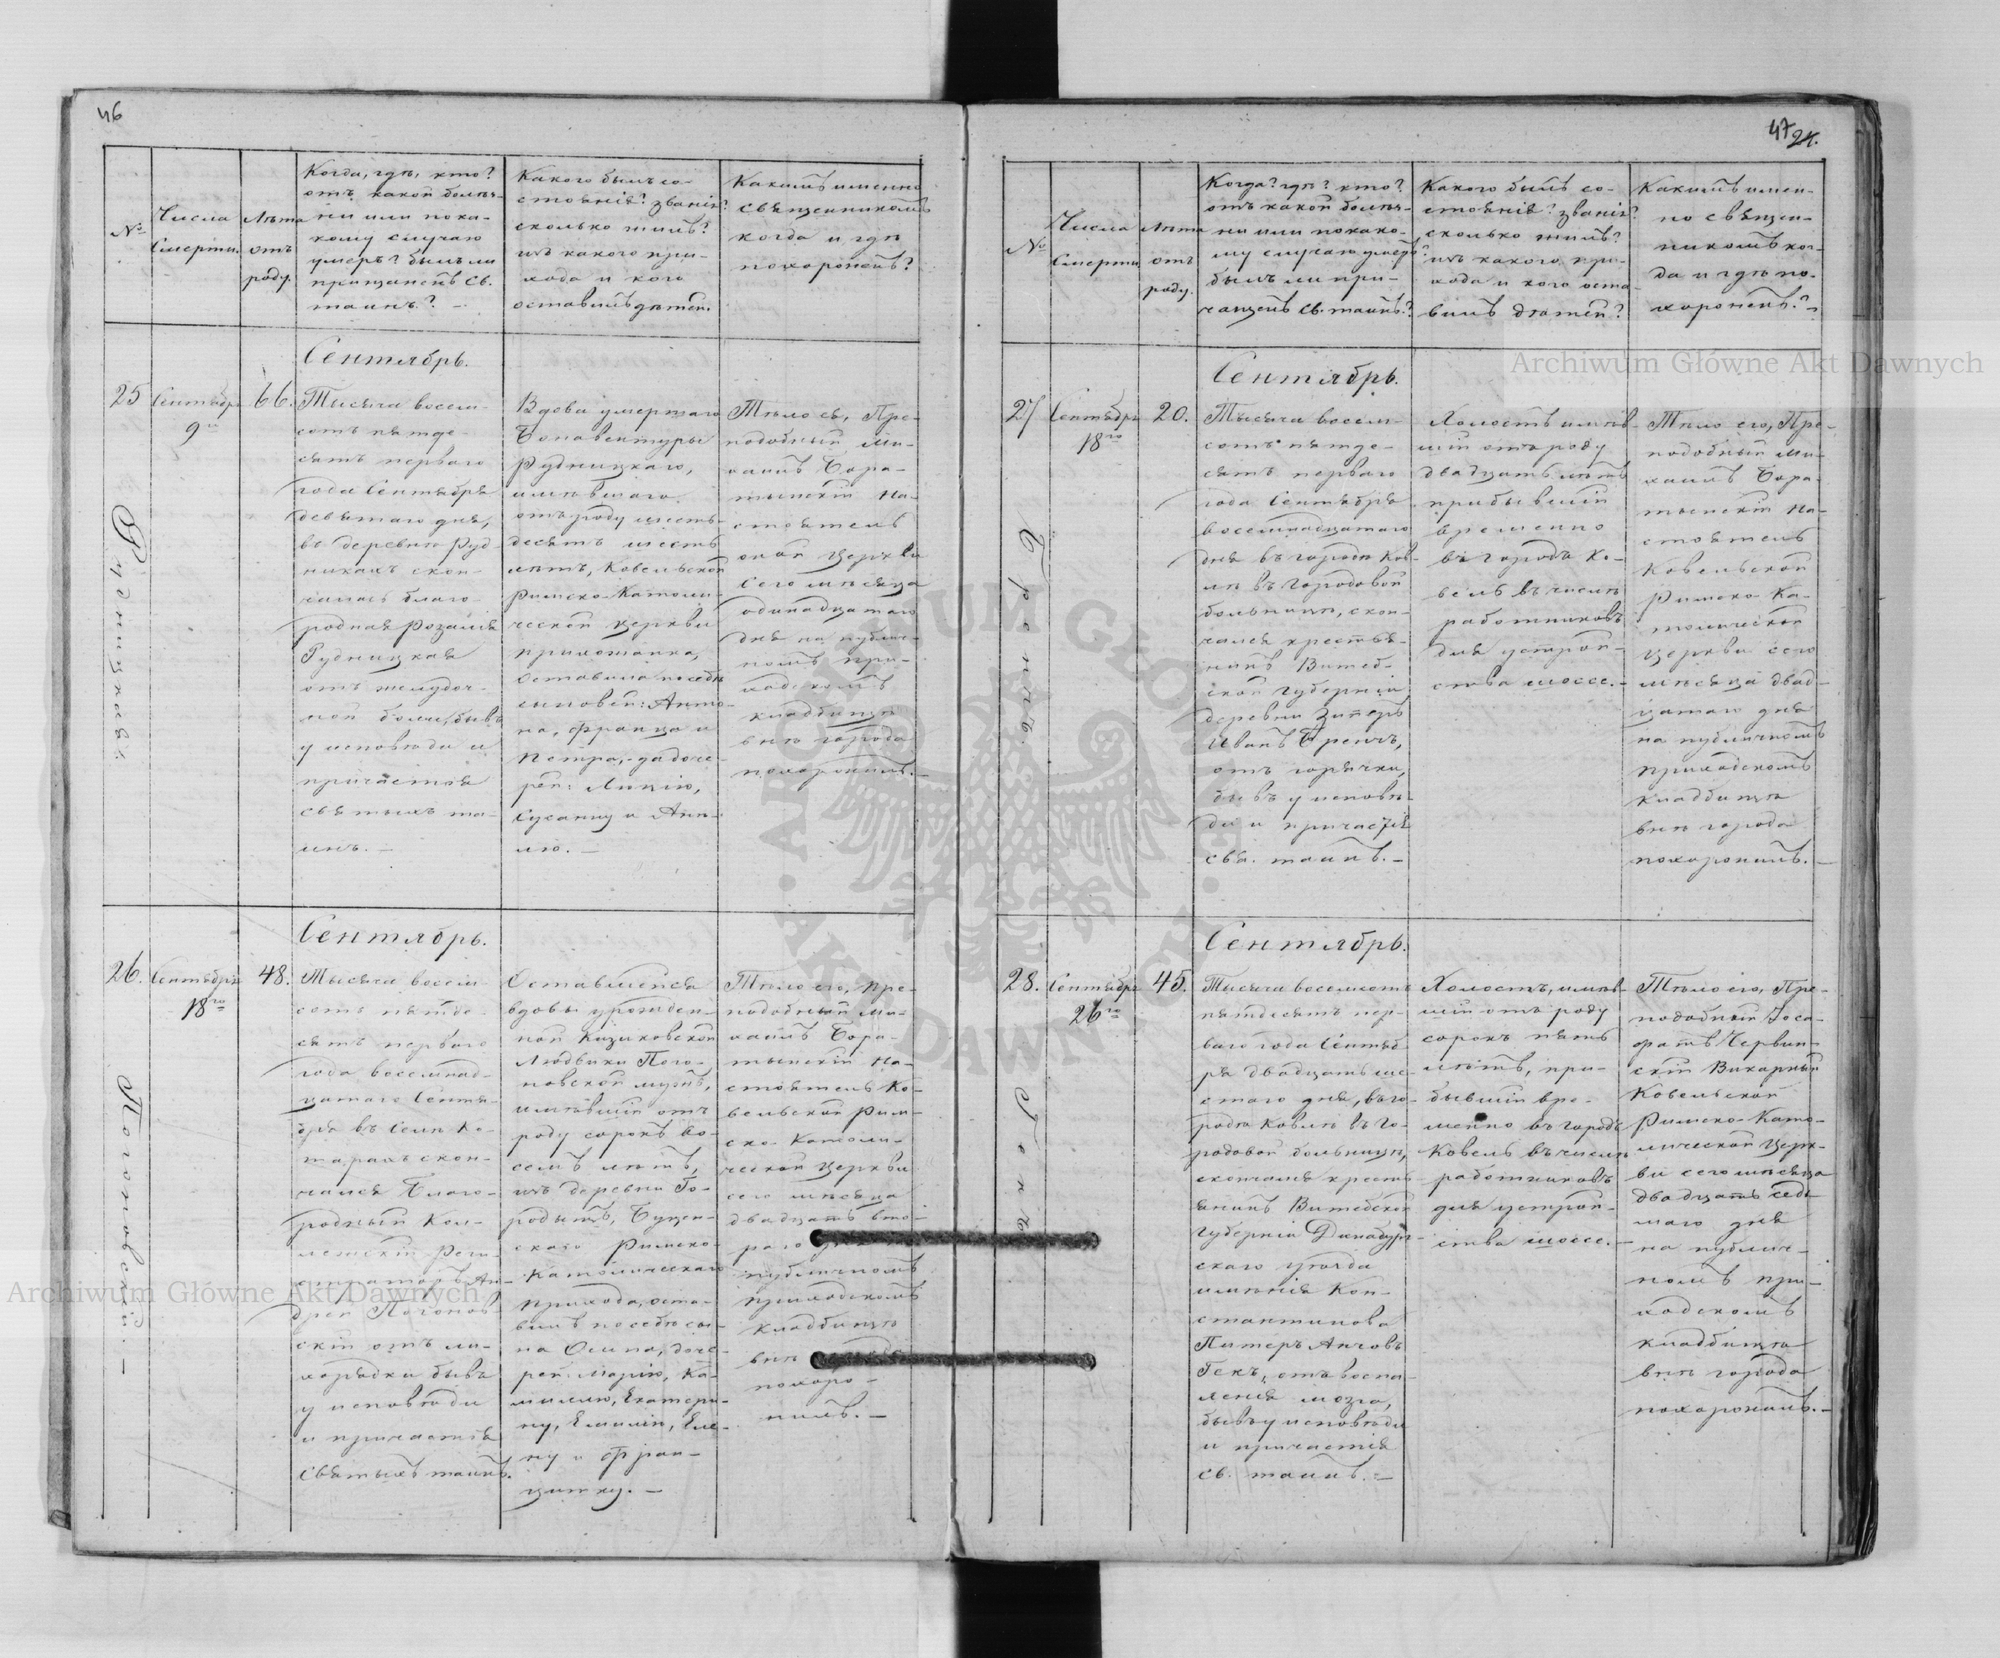 46
№
Числа
Смерти.
Лѣта
отъ
роду.
Когда, гдѣ, кто?
отъ какой болѣз-
ни или по ка-
кому случаю
умеръ? былъ ли
причащенъ Св.
таинъ? —
Какого былъ со-
стоянія? званія?
сколько жилъ?
изъ какого при-
хода и кого
оставилъ дѣтей.
Какимъ именно
священникомъ
когда и гдѣ
похороненъ?
Сентябрь.
25
Сентября
9го
66.
Рудницкая.
Тысяча восем-
сотъ пятде-
сятъ перваго
года Сентября
девятаго дня,
въ деревнѣ Руд-
никахъ скон-
чалась благо-
родная Розалія
Рудницкая
отъ желудоч-
ной боли, бывъ
у исповѣди и
причастія
святыхъ та-
инъ. —
Вдова умершаго
Бонавентуры
Рудницкаго,
имѣвшаго
отъ роду шесть-
десятъ шесть
лѣтъ, Ковельской
Римско-Католи-
ческой церкви
прихожанка,
оставила по себѣ
сыновей: Анто-
на, Франца и
Петра, - да доче-
рей:
Сусанну и Анн-
ю. —
Тѣло ея, Пре-
подобный Ми-
хаилъ Бора-
тынскій На-
стоятель
оной Церкви
сего мѣсяца
одинадцатаго
дня на публич-
номъ при-
ходскомъ
кладбищѣ
внѣ города
похоронилъ. —
Сентябрь.
26.
Сентября
18го
48.
Погоновскій. —
Тысяча восем-
сотъ пятде-
сятъ перваго
года восемнад-
цатаго Сентя-
бря въ Селѣ Ко-
тарахъ скон-
чался Благо-
родный Кол-
лежскій Реги-
страторъ Ан-
дрей Погонов-
скій отъ ли-
хорадки бывъ
у исповѣди
и причастія
святыхъ таинъ.
Оставшейся
вдовы урожден-
ной Казиковской
Людвики Пого-
новской мужъ,
имѣвшій отъ
роду сорокъ во-
семъ лѣтъ,
изъ деревни Го-
родытъ,
скаго Римско-
Католическаго
прихода, оста-
вилъ по себѣ сы-
на Осипа, доче-
рей: Марію, Ка-
миллю, Екатери-
ну, Емилію, Еле-
ну и Фран-
цишку. —
Тѣло его, Пре-
подобный Ми-
хаилъ Бора-
тынскій На-
стоятель Ко-
вельской Рим-
ско-Католи-
ческой Церкви
сего мѣсяца
двадцать вто-
раго
публичномъ
приходскомъ
кладбищѣ
внѣ
похоро-
нилъ. —
47
24.
№
Числа
Смерти.
Лѣта
отъ
роду.
Когда? гдѣ? кто?
отъ какой болѣз-
ни или по како-
му случаю умеръ?
былъ ли при-
чащенъ Св. таинъ?
Какого былъ со-
стоянія? званія?
сколько жилъ?
изъ какого при-
хода и кого оста-
вилъ дѣтей?
Какимъ имен-
но священ-
никомъ ког-
да и гдѣ по-
хороненъ? —
Сентябрь.
27
Сентября
18го
20.
Тысяча восем-
сотъ пятде-
сятъ перваго
года Сентября
восемнадцатаго
дня въ городѣ Ков-
лѣ въ Городовой
больницѣ, скон-
чался крестья-
нинъ Витеб-
ской Губерніи
деревни
Иванъ Бренчъ,
отъ горячки,
бывъ у исповѣ-
ди и причастія
свя. таинъ. —
Холостъ имѣв-
шій отъ роду
двадцать лѣтъ
прибывшій
временно
въ городъ Ко-
вель въ числѣ
работниковъ
для устрой-
ства шоссе. —
Тѣло его, Пре-
подобный Ми-
хаилъ Бора-
тынскій На-
стоятель
Ковельской
Римско-Ка-
толической
Церкви сего
мѣсяца двад-
цатаго дня
на публичномъ
приходскомъ
кладбищѣ
внѣ города
похоронилъ. —
Сентябрь.
28.
Сентября
26го
45.
Гекъ
Тысяча восемьсотъ
пятдесятъ пер-
ваго года Сентяб-
ря двадцать ше-
стаго дня, въ го-
родѣ Ковлѣ въ Го-
родовой больницѣ,
скончался кресть-
янинъ Витебской
Губерніи Динабург-
скаго уѣзда
имѣнія Кон-
стантинова
Питеръ Анчовъ
Гекъ, отъ воспа-
ленія мозга,
бывъ у исповѣди
и причастія
св. таинъ. —
Холостъ, имѣв-
шій отъ роду
сорокъ пять
лѣтъ, при-
бывшій вре-
менно въ городъ
Ковель въ числѣ
работниковъ
для устрой-
ства шоссе. —
Тѣло его, Пре-
подобный Іоса-
фатъ Червин-
скій Викарный
Ковельской
Римско-Като-
лической Церк-
ви сего мѣсяца
двадцать седь-
маго дня
на публич-
номъ при-
ходскомъ
кладбищѣ
внѣ города
похоронилъ. —
Archiwum Główne Akt Dawnych
Archiwum Główne Akt Dawnych
ARCHIWUM GŁÓWNE AKT DAWNYCH